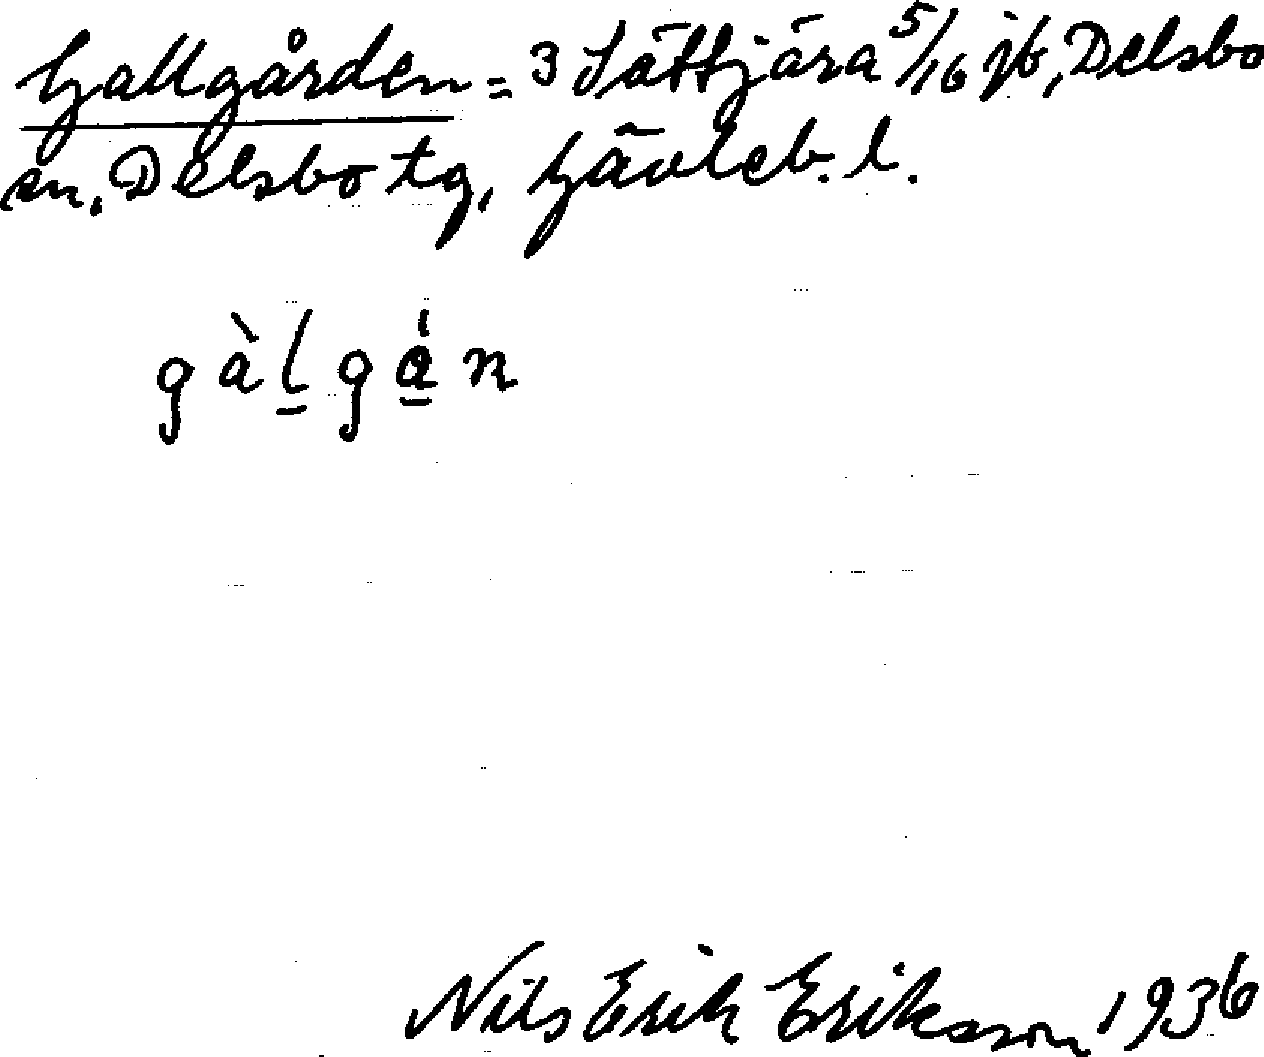 Gallgården = 3 Sättjära 5/16 jb, Delsbo
sn. Delsbo tg, Gävleb. l.
gàl̲gǻ̲n
Nils Erik Eriksson 1936